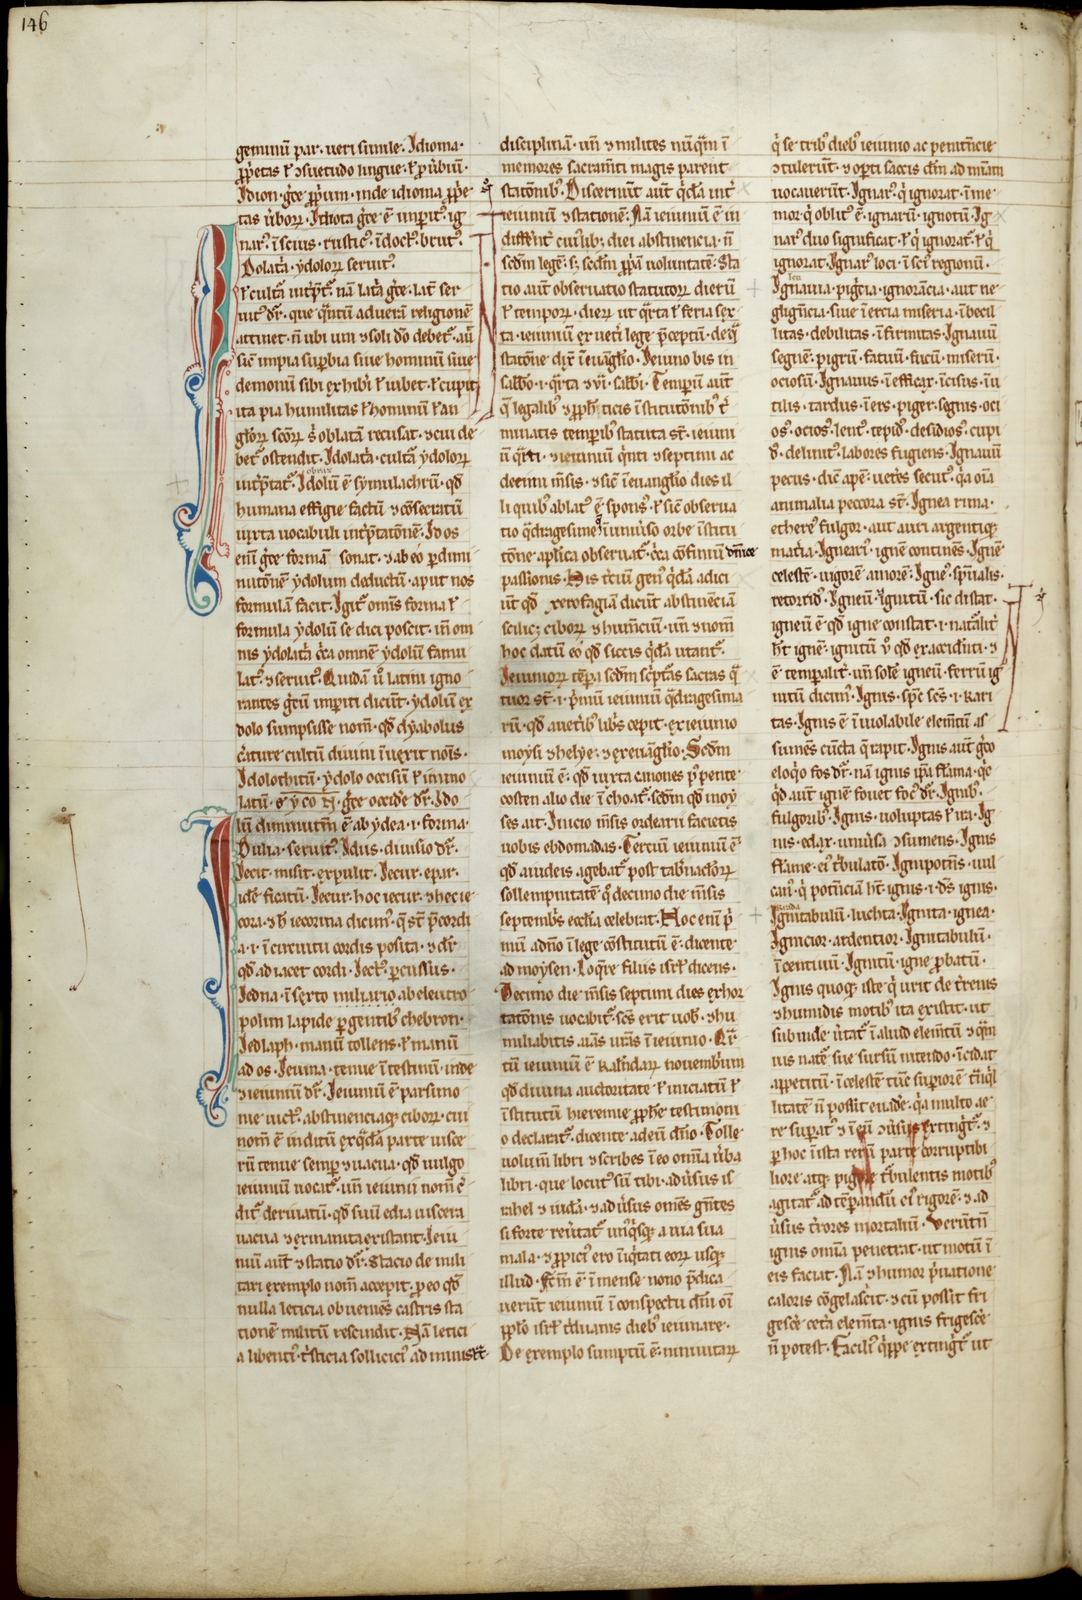 146
geminū par. ueri simile. Idioma.
ꝓp̄etas ł ɔsuetudo lingue. ł ꝓūbiū.
Idion. g̊ce ꝓp̄um. inde idioma ꝓp̄e
tas ūboꝝ. Idiota g̊ce ē inperitꝰ. ig
narꝰ. īscius. rusticꝰ. īdoctꝰ. brutꝰ.
Dolatͣa. ydoloꝝ seruitꝰ.
ł cultͣa int̄p̄tat᷑. nā latͣa g̊ce. lat̄. ser
uitꝰ dr̄. que q̄ntū aduerā religionē
attinet. n̄ ubi uni ⁊ soli do debet᷑. aū
sic̄ impia suꝑbia siue hominū siue
demonū sibi exhib̄i ł iubet. ł cupit
ita pia humilitas ł hominū ł an
głoꝝ sc̄oꝝ s̄ oblatā recusat. ⁊ cui de
bet᷑ ostendit. Idolatͣa. cultͣa ydoloꝝ
int̄p̄tat᷑. Idolū ē symulachrū. qd̄
humana effigie factū ⁊ cōsecratū
iuxta uocabuli int̄p̄tatōnē. Idos
enī g̊ce formā sonat. ⁊ ab eo ꝑ dimi
nutōnē ydolum deductū. aput nos
formulā facit. Igit᷑ omīs forma ł
formula ydolū se dici poscit. in̄ om
nis ydolatͣa c̄ca omnē ydolū famu
latꝰ. ⁊ seruitꝰ. Quidā ū latini igno
rantes g̊cū inꝑiti dicūt. ydolū ex
dolo sumpsisse nom̄. qd̄ dyabolus
c̄ature cultū diuini īuexit nōis.
Idolothitū. ydolo occisū ł immo
latū. g̊ce occide dr̄. Ido
lū diminutiū ē ab ydea. i. forma.
Dulia. seruitꝰ. Idus. diuisio dr̄.
Iecit. misit. expulit. Iecur. epar.
idē ficatū. Iecur. hoc iecur. ⁊ hoc ie
cora. ⁊ h̄ iecorina dicunt᷑. q̄ st̄ p̄cordi
a. i. ī circuitu cordis posita. ⁊ dr̄.
qd̄ adiacet cordi. Iectꝰ. ꝑcussus.
Iedna. ī sexto miliario ab eleutro
polim lapide ꝑgentibꝰ chebron.
Iedlaph. manū tollens. ł manū
ad os. Ieiuna. tenue ītestinū. inde
⁊ ieiuniū dr̄. Ieiuniū ē parsimo
nie uictꝰ. abstinenciaqꝫ ciboꝝ. cui
nom̄ ē inditū ex q̄dā parte uisce
rū tenue semꝑ ⁊ uacua. qd̄ uulgo
ieiuniū uocat᷑. un̄ ieiunii nom̄ ē
dit᷑ deriuatū. qd̄ sui inedia uiscera
uacua ⁊ exinanita existant. Ieiu
niū aūt ⁊ statio dr̄. Stacio de mili
tari exemplo nom̄ accepit. ꝓ eo qd̄
nulla leticia obueniēs castris sta
tionē militū rescindit. Nā letici
a libentiꝰ. t̄sticia sollicitiꝰ administ
disciplinā. un̄ ⁊ milites nūq̄m ī
memores sacram̄ti magis parent
stationibꝰ. Discernūt aūt q̄dā int̄
ieiuniū ⁊ stationē. Nā ieiuniū ē in
differēt᷑ cuiꝰlib; diei abstinencia. n̄
sc̄dm legē. s; sc̄dm ꝓp̄ā uoluntatē. Sta
tio aūt obseruatio statutoꝝ dierū
ł tempoꝝ. dieꝝ ut q̄rta ł feria sex
ta. ieiuniū ex ueti lege p̄ceptū. de q̄
statōne dix̄ īeuāgłio. Ieiuno bis in
sabb̄o. i. q̄rta ⁊ vī. sabb̄i. Tempū aūt
q̄ legalibꝰ ⁊ ꝓph̄ticis īstitutōnibꝰ t̄
minatis temporibꝰ statuta st̄. ieiuni
ū q̄rti. ⁊ ieiuniū q̄nti ⁊ septimi ac
decimi m̄sis. ⁊ sic̄ ī euangłio dies il
li quibꝰ ablatꝰ ē sponsꝰ. ł sic̄ obserua
tio q̄dragesime ī uniūso orbe īstitu
tōne aplica obseruat᷑. c̄ca cōfiniū dn̄ice
passionis. His t̄ciū genꝰ q̄dā adici
ūt qd̄ xerofagiā dicūt abstinēciā
scilic; ciboꝝ ⁊ humēciū. un̄ ⁊ nom̄
hoc datū eo qd̄ siccis q̄dā utant᷑.
Ieiunioꝝ tēꝑa sc̄dm sc̄pt̄as sacras q̄
tuor st̄. i. p̄mū ieiuniū q̄dragesima
rū. qd̄ a uetibꝰ lib̄s cepit. ex ieiunio
moysi ⁊ helye. ⁊ ex euāgłio. Sc̄dm
ieiuniū ē. qd̄ iuxta canones pꝰ pente
costen alio die ī choat᷑. sc̄dm qd̄ moy
ses ait. Inicio m̄sis ordearii facietis
uobis ebdomadas. Terciū ieiuniū ē
qd̄ a iudeis agebat᷑ post tabnacłoꝝ
sollempnitatē q̄ decimo die m̄sis
septembꝰs eccłia celebrat. Hoc enī p̄
mū ad n̄o ī lege cōstitutū ē. dicente
ad moysen. Loq̄re filiis isrł dicens.
Decimo die m̄sis septimi dies exhor
tatōnis uocabit᷑. sc̄s erit uob̄. ⁊ hu
miliabitis aīas ur̄as ī ieiunio. Qr̄
tū ieiuniū ē kalndaꝝ nouembrium
qd̄ diuina auctoritate ł iniciatū ł
īstitutū hieremie ꝓphe testimoni
o declarat᷑. dicente ad eū dn̄o. Tolle
uolum̄ libri ⁊ scribes ī eo om̄ia ūba
libri. que locutꝰ sū tibi. adūsus is
rahel ⁊ iudā. ⁊ adūsus omēs gn̄tes
si forte reūtat᷑ unꝰq̄sqꝫ a uia sua
mala. ⁊ ꝓpiciꝰ ero īiq̄tati eoꝝ usqꝫ
illud. Fc̄m ē ī mense nono p̄dica
uerūt ieiuniū ī conspectu dn̄i oī
pplo isrł t̄duanis diebꝰ ieiunare.
De exemplo sumptū ē niniuitaꝝ
q̄ se tribꝰ diebꝰ ieiunio ac penitēcie
ɔtulerūt. ⁊ opti saccis dn̄m ad mīam
uocauerūt. Ignarꝰ. q̄ ignorat. īme
mor. q̄ oblitꝰ ē. ignarū. ignotū. Ig
narꝰ duo significat. ł q̄ ignorat᷑. ł q̄
ignorat. Ignarꝰ loci. ī scīꝰ regionū.
Ignauia. pigͣcia. ignorācia. aut ne
gligēcia. siue īercia miseria. ībecil
litas. debilitas. īfirmitas. Ignauū
segnē. pigrū. fatuū. fucū. miserū.
ociosū. Ignauus. īefficax. īcisus. īu
tilis. tardus. īers. piger. segnis. oci
osꝰ. ociosꝰ. lentꝰ. tepidꝰ. desidiosꝰ. cupi
dꝰ. delinitꝰ. labores fugiens. Ignauū
pecus. dic̄ apē. uetēs secutꝰ. q̄a oīa
animalia peccora st̄. Ignea rima.
etherꝰ fulgor. aut auri argentiqꝫ
matͣia. Ignearꝰ. ignē continēs. Ignē
celestē. uigorē amorē. Ignē. spualis.
retorridꝰ. Igneū. ł ignitū. sic distat.
igneū ē qd̄ igne constat. i. natalit̄
ht̄ ignē. ignitū ū qd̄ ex accidnti. ⁊
ē temꝑalit̄. un̄ solē igneū. ferrū ig
nitū dicimꝰ. Ignis. sp̄c sc̄s. i. kari
tas. Ignis ē īuiolabile elem̄tū. as
sumēs cūcta q̄ rapit. Ignis. aūt g̊co
eloq̄o fos dr̄. nā ignis ip̄a flāma. q̄c
q̄d aūt ignē fouet focꝰ dr̄. Ignibꝰ.
fulgoribꝰ. Ignis. uoluptas ł ira. Ig
nis. edax. uniūsa ɔsumens. Ignis
flāme. eiꝰ t̄bulatō. Ignipotn̄s. uul
canꝰ. q̄ potēciam ht̄. ignis. i. ds̄ ignis.
Ignitabulū. luchta. Ignita. ignea.
Ignicior. ardentior. Ignitabulū.
īcentiuū. Ignitū. igne ꝓbatū.
Ignis quoqꝫ iste q̄ urit de t̄renis
⁊ humidis motibꝰ ita existit. ut
subinde ūtat᷑ ī aliud elem̄tū ⁊ q̄m
uis nat᷑e sue sursū intendo. īcidat
appetitū. ī celestē tūc suꝑiorē t̄nq̄l
litatē n̄ possit euade. q̄a multo ae
re suꝑat᷑ ⁊ ī eū ɔuisus extingt᷑. ⁊
ꝑ hoc īista regiū parte corruptibi
liore atqꝫ pigriore t̄bulentis motibꝰ
agitat᷑ ad tēꝑandū eiꝰ rigorē. ⁊ ad
ūsus t̄rores mortaliū. Verūtn̄
ignis om̄ia penetrat. ut motū ī
eis faciat. Nā ⁊ humor p̄uatione
caloris cōgelascit. ⁊ cū possit fri
gesc̄e cet̄a elem̄ta. ignis frigesc̄e
n̄ potest. Faciliꝰ q̄ppe extingt᷑ ut